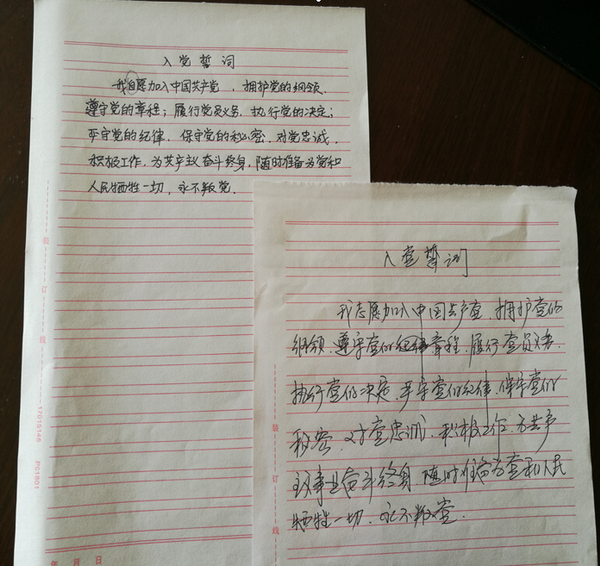 入党誓词
我自愿加入中国共产党,拥护党的纲领,
遵守党的章程;履行党员义务,执行党的决定;
严守党的纪律,保守党的秘密,对党忠诚,
积极工作,为共产主义奋斗终身,随时准备为党和
人民牺牲一切,永不叛党.
装订线
年 月 日
入党誓词
我志愿加入中国共产党,拥护党的
纲领,遵守党的章程,履行党员义务,
执行党的决定,严守党的纪律,保守党的
秘密,对党忠诚,积极工作,为共产
主义事业奋斗终身,随时准备为党和人民
牺牲一切,永不叛党.
装订线